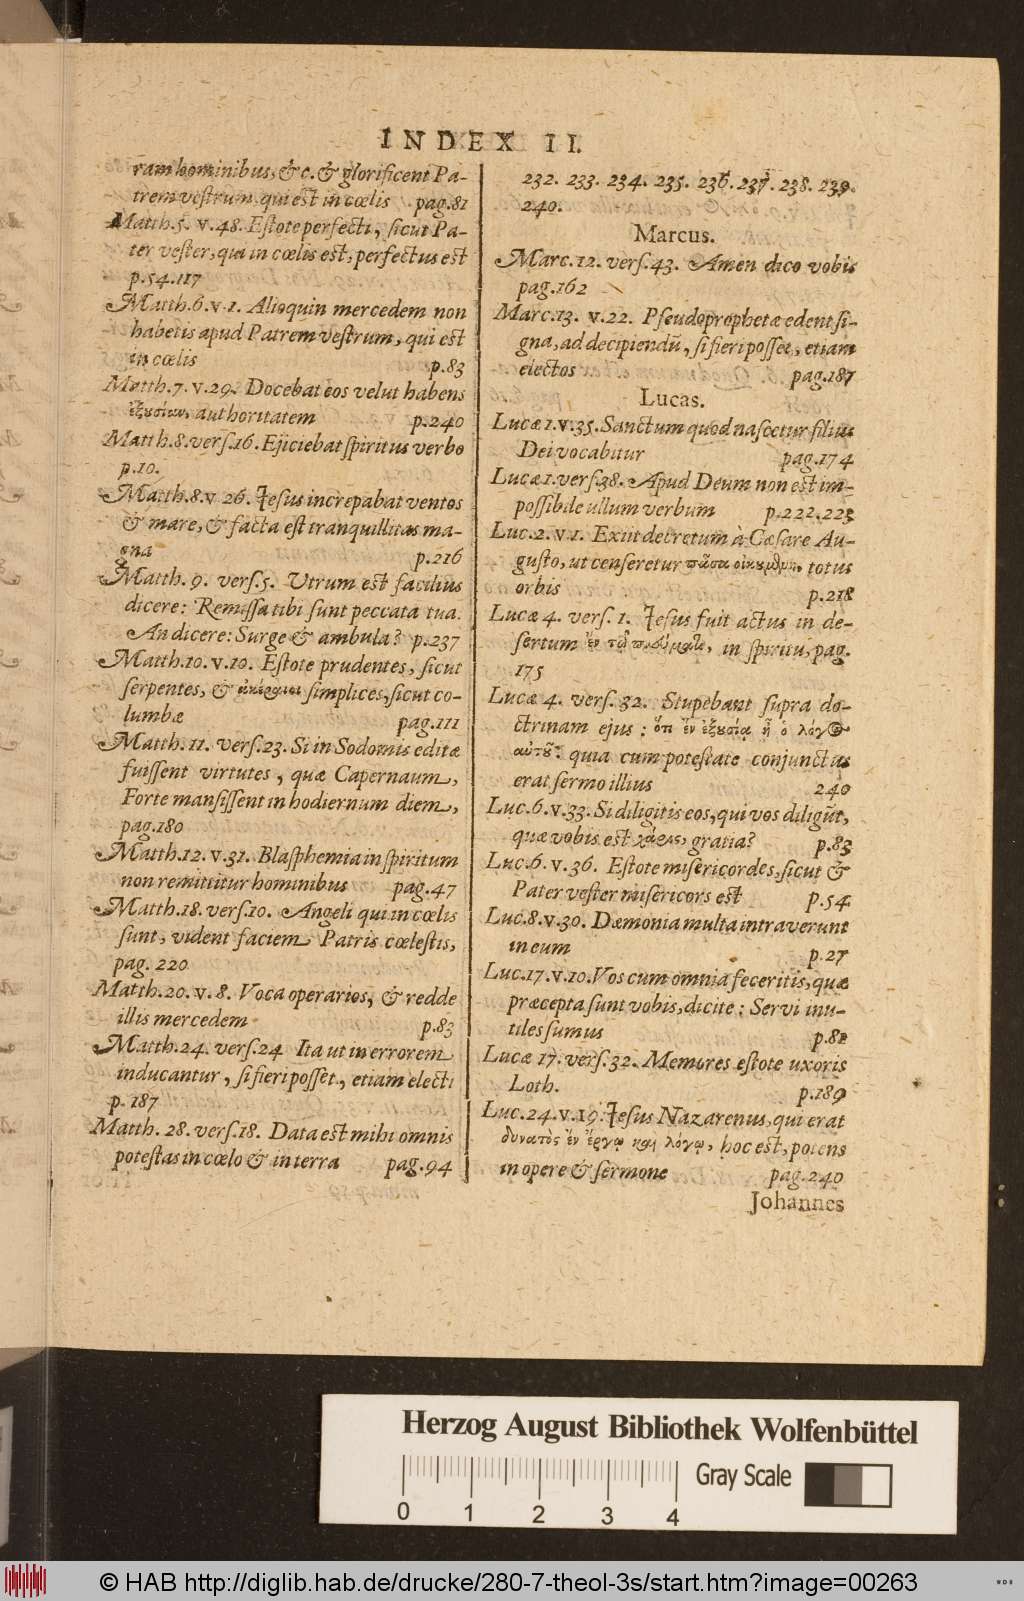 INDEX II.
ram hominibus, &c. & glorificent Pa-
trem vestrum qui est in cœlis pag.81
Matth.5. v.48. Estote perfecti, sicut Pa-
ter vester, qui in cœlis est, perfectus est
p.54.117
Matth.6.v.1. Alioquin mercedem non
habetis apud Patrem vestrum, qui est
in cœlis p.83
Matth.7.v.29. Docebat eos velut habens
ἐξουσίαν, authoritatem p.240
Matth.8.vers.16. Ejiciebat spiritus verbo
p.10.
Matth.8.v 26. Jesus increpabat ventos
& mare, & facta est tranquillitas ma-
gna p.216
Matth. 9. vers.5. Utrum est facilius
dicere: Remissa tibi sunt peccata tua.
An dicere: Surge & ambula? p.237
Matth.10.v.10. Estote prudentes, sicut
serpentes, & ἀκέραιοι simplices, sicut co-
lumbæ pag.111
Matth. 11. vers.23. Si in Sodomis editæ
fuissent virtutes, quæ Capernaum,
Forte mansissent in hodiernum diem,
pag.180
Matth.12.v.31. Blasphemia in spiritum
non remittitur hominibus pag.47
Matth.18.vers.10. Angeli qui in cœlis
sunt, vident faciem Patris cœlestis,
pag. 220
Matth.20.v.8. Voca operarios, & redde
illis mercedem p.83
Matth.24. vers.24 Ita ut in errorem
inducantur, si fieri posset, etiam electi
p.187
Matth. 28. vers.18. Data est mihi omnis
potestas in cœlo & in terra pag.94
232. 233. 234. 235. 236. 237. 238. 239.
240.
Marcus.
Marc.12. vers.43. Amen dico vobis
pag.162
Marc.13. v.22. Pseudoprophetæ edent si-
gna, ad decipiendũ, si fieri posset, etiam
electos pag.187
Lucas.
Lucæ 1.v.35. Sanctum quod nascetur filius
Dei vocabitur pag.174
Lucæ 1.vers.38. Apud Deum non est im-
possibile ullum verbum p.222.223
Luc.2.v.1. Exiit decretum à Cæsare Au-
gusto, ut censeretur πᾶσα οἰκουμένη, totus
orbis p.218
Lucæ 4. vers. 1. Jesus fuit actus in de-
sertum ἐν τῷ πνεύματι, in spiritu, pag.
175
Lucæ 4. vers. 32. Stupebant supra do-
ctrinam ejus: ὅτι ἐν ἐξουσίᾳ ἦ ὁ λόγος
αὐτοῦ: quia cum potestate conjunctus
erat sermo illius 240
Luc.6.v.33. Si diligitis eos, qui vos diligũt,
quæ vobis est χάρις, gratia? p.83
Luc.6. v.36. Estote misericordes, sicut &
Pater vester misericors est p.54
Luc.8.v.30. Dæmonia multa intraverunt
in eum p.27
Luc.17.v.10. Vos cum omnia feceritis, quæ
præcepta sunt vobis, dicite: Servi inu-
tiles sumus p.82
Lucæ 17. vers.32. Memores estote uxoris
Loth. p.189
Luc.24.v.19. Jesus Nazarenus, qui erat
δυνατὸς ἐν ἔργῳ καὶ λόγῳ, hoc est, potens
in opere & sermone pag.240
Johannes
Herzog August Bibliothek Wolfenbüttel
Gray Scale
0 1 2 3 4
© HAB http://diglib.hab.de/drucke/280-7-theol-3s/start.htm?image=00263